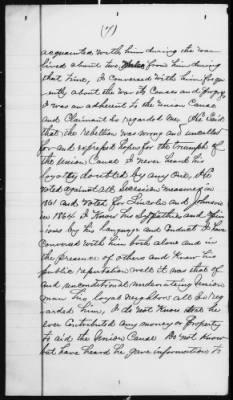 (7)
acquainted with him during the war
lived about two miles from him during
that time, I Conversed with him frequ
ently about the war its Causes and progress
I was an adherent to the Union Cause
and Claimant So regarded me, He Said
that the rebellion was wrong and uncalled
for and expressed hopes for the triumph of
the Union Cause I never heard his
loyalty doubted by any one, He
voted against all Secession measures in
1861 and voted for Lincoln and Johnson
in 1864 I Know his Sympathies and Opin
ions by his Language and Conduct I have
Conversed with him both alone and in
the presence of others and Know his
public reputation well it was that of
and unconditional Union
man his loyal Neighbors all So reg
arded him, I do not Know that he
ever Contributed any money or Property
to aid the Union Cause Do not Know
but have heard he gave information to